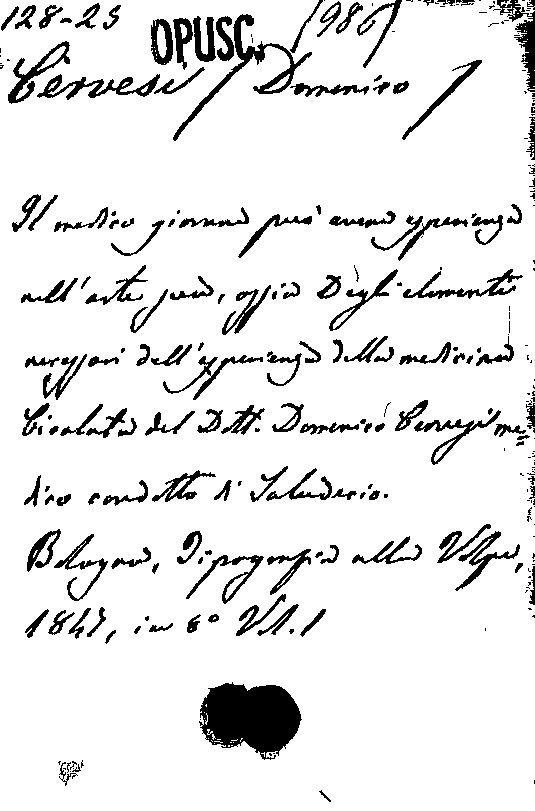 128-23 (986)
OPUSC.
Cervesi / Domenico /
Il medico giovane può avere esperienza
nell'arte sua, ossia Degli elementi
necessari dell'esperienza della medicina
Cicalata del Dott. Domenico Cervesi me-
dico condotto di Saludecio.
Bologna, Tipografia alla Volpe,
in 8° Vol. 1